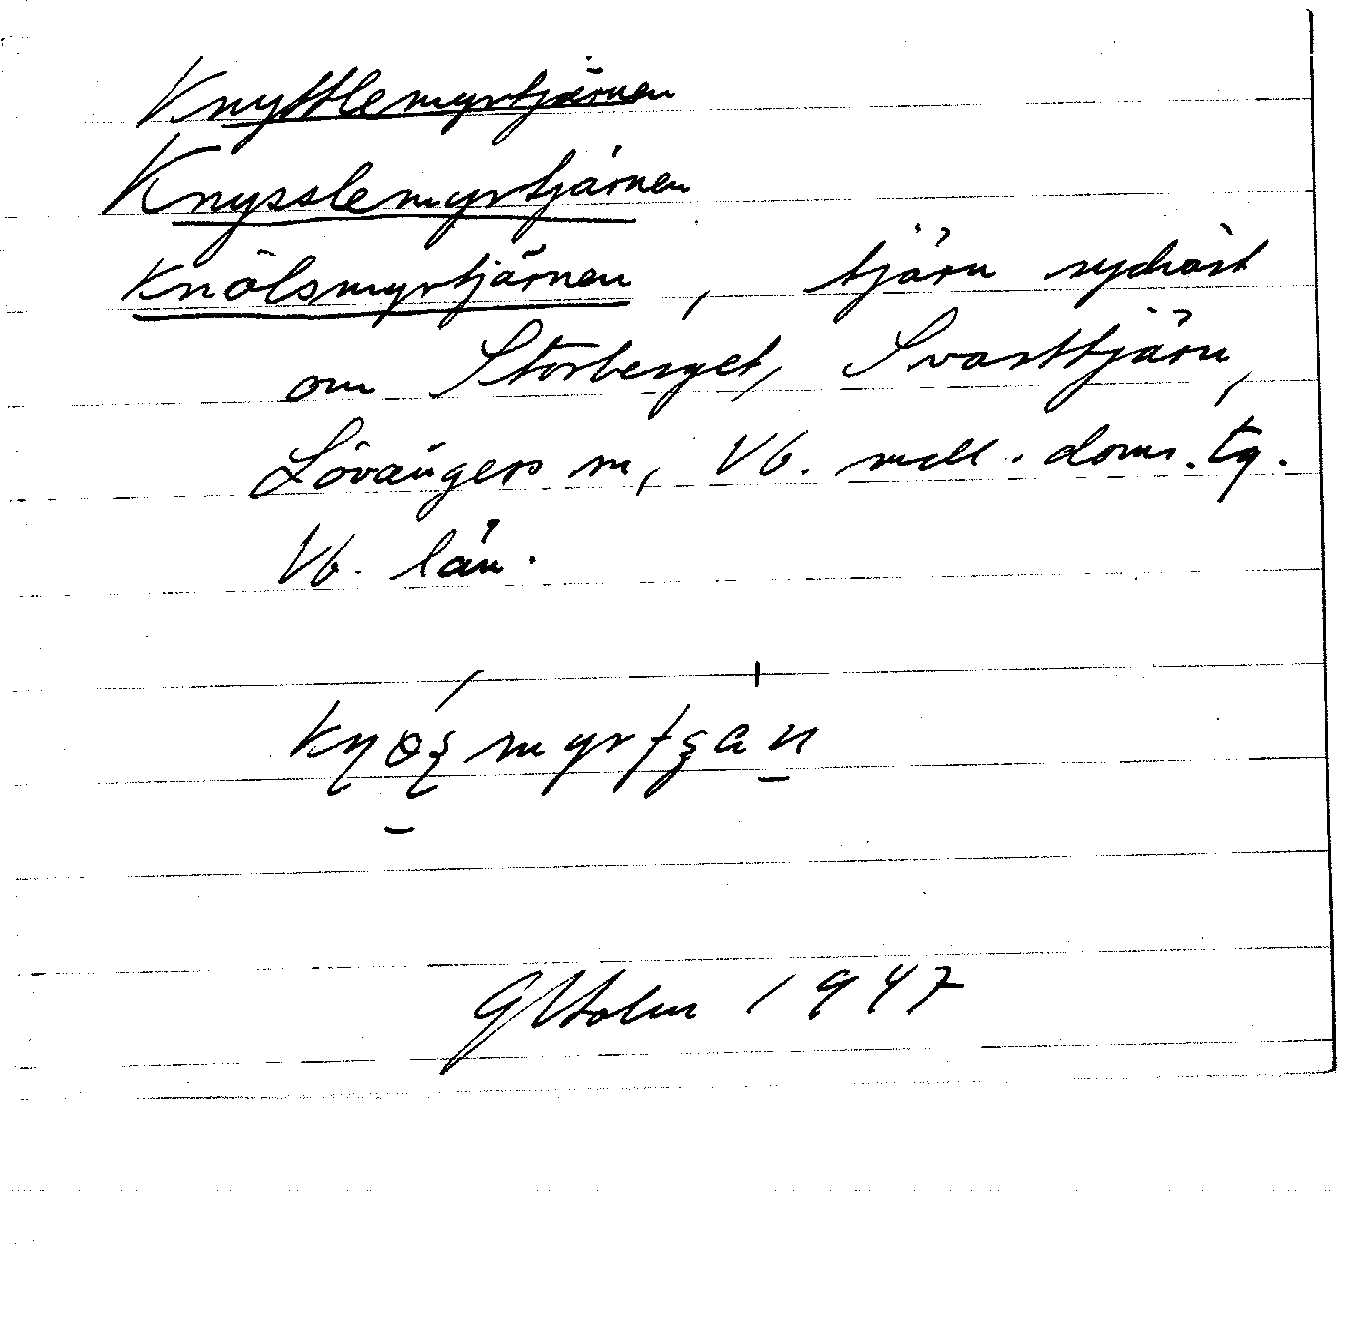 Knyttlemyrtjärnen
Knysslemyrtjärnen
Knölsmyrtjärnen, tjärn sydväst
om Storberget, Svarttjärn,
Lövångers sn, Vb. mell. doms. tg.
Vb. län.
G Holm 1947